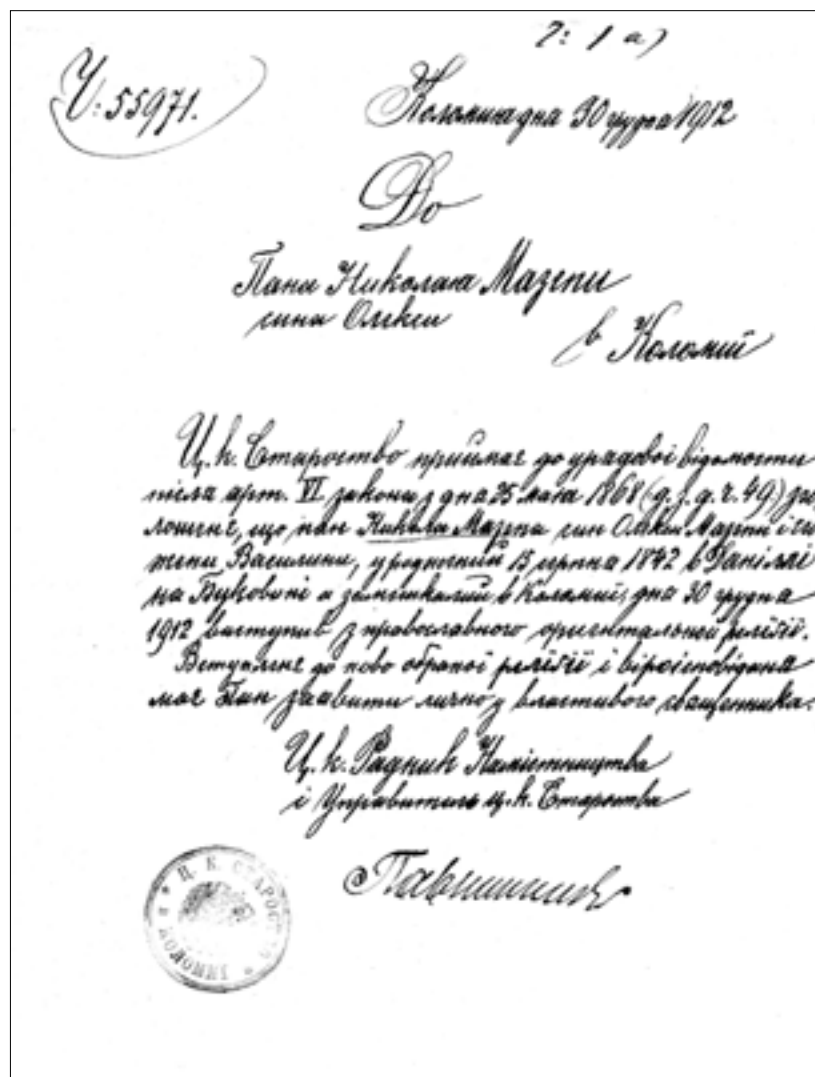 7: 1 а)
Ч: 55971.
Коломия дня 30 грудня 1912
До
Пана Николая Мазепи
сина Олекси
в Коломиї
Ц. к. Староство приймає до урядової відомости
після арт. VI закону з дня 25 мая 1868 (д. з. д. ч. 49) зго
лошенє, що пан Никола Мазепа син Олекси Мазепи і
Василини, уроджений 15 серпня 1842 в
на Буковині а замешкалий в Коломиї, дня 30 грудня
1912 виступив з православного ориєнтальної релїґії.
Вступленє до ново обраної релїґії і віроісповіданя
має Пан заявити лично у властивого священника.
Ц. к. Радник Намістництва
і Управитель ц. к. Староства
Ц. К. СТАРОСТВО КОЛОМИЇ